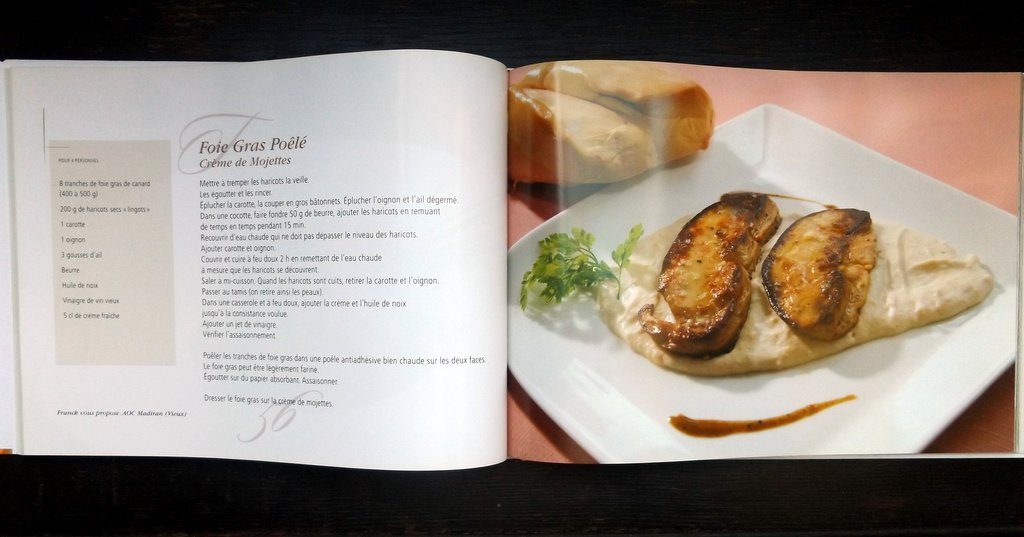 Foie Gras Poêlé
Crème de Mojettes
POUR 4 PERSONNES
8 tranches de foie gras de canard
(400 à 500 g)
200 g de haricots secs « lingots »
1 carotte
1 oignon
3 gousses d'ail
Beurre
Huile de noix
Vinaigre de vin vieux
5 cl de crème fraîche
Mettre à tremper les haricots la veille.
Les égoutter et les rincer.
Éplucher la carotte, la couper en gros bâtonnets. Éplucher l'oignon et l'ail dégermé.
Dans une cocotte, faire fondre 50 g de beurre, ajouter les haricots en remuant
de temps en temps pendant 15 min.
Recouvrir d'eau chaude qui ne doit pas dépasser le niveau des haricots.
Ajouter carotte et oignon.
Couvrir et cuire à feu doux 2 h en remettant de l'eau chaude
à mesure que les haricots se découvrent.
Saler à mi-cuisson. Quand les haricots sont cuits, retirer la carotte et l'oignon.
Passer au tamis (on retire ainsi les peaux).
Dans une casserole et à feu doux, ajouter la crème et l'huile de noix
jusqu'à la consistance voulue.
Ajouter un jet de vinaigre.
Vérifier l'assaisonnement.
Poêler les tranches de foie gras dans une poêle antiadhésive bien chaude sur les deux faces.
Le foie gras peut être légèrement fariné.
Égoutter sur du papier absorbant. Assaisonner.
Dresser le foie gras sur la crème de mojettes.
Franck vous propose AOC Madiran (Vieux)
56